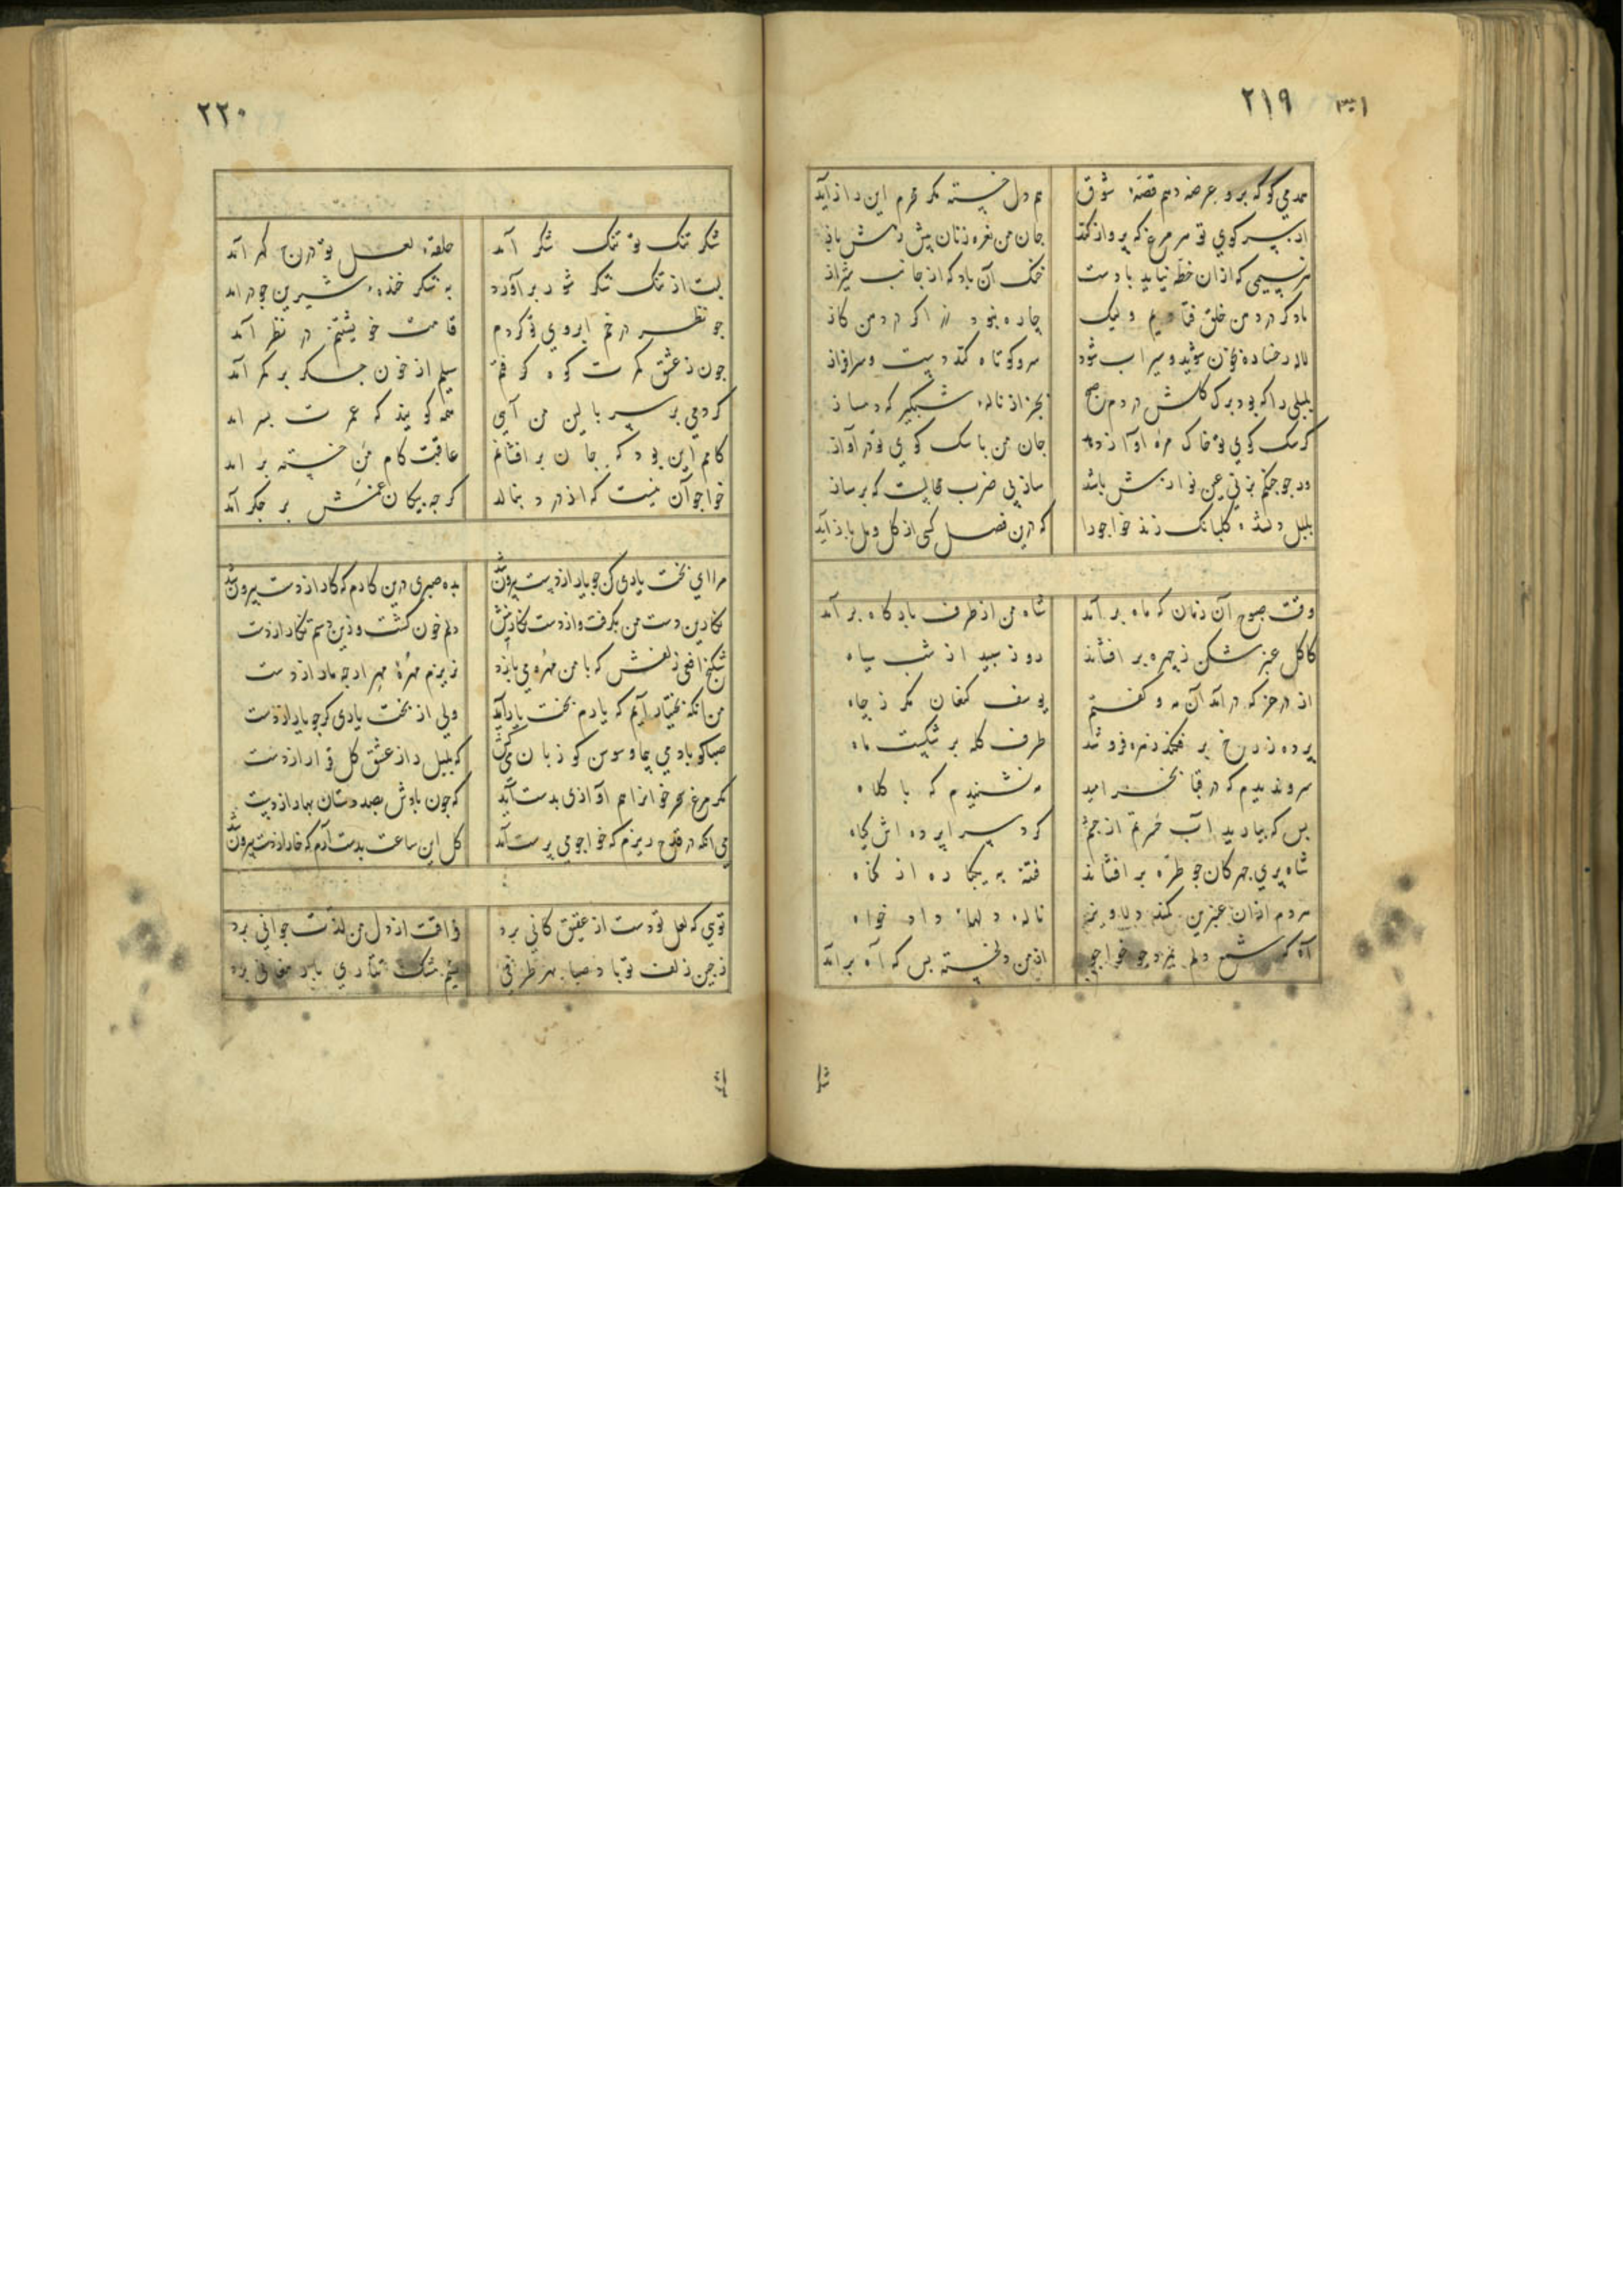 ۲۱۹
محرمی کو که برو عرضه دهم قصهٔ شوق
هم دل خسته مکر محرم این راز آید
از سر کوی تو هر مرغ که پرواز کند
جان من نعره زنان پیش
هر نسیمی که از ان خطه نیاید بادست
خنک آن باد که از جانب شیراز
ما دکر در دهن خلق فتادیم ولیک
چاره نبود
لاله رخساره بخون شوید و سیراب شود
سرو کوتاه کند دست و سرافراز
بلبلی را که بود برک کلش در دم صبح
بجز از نالهٔ شبکیر که دمساز
کر سک کوی تو بر خاک مزه آواز دهد
جان من با سک کوی تو در آواز
ور چو جنکم بزنی عین نوازش باشد
ساز بی ضرب محالست که بر ساز
بلبل دلشده کلبانک زند خواجو را
که درین فصل کسی از کل و مل باز آید
وقت صبوح آن زمان که ماه بر آمد
شاه من از طرف بارکاه بر آمد
کاکل عنبر شکن ز چهره بر افشاند
روز سپید از شب سیاه
از در حز که در آمد آن مه و کفتم
یوسف کنعان مکر ز چاه
پرده ز رخ بر فکند زهره فرو شد
طرف کله بر شکست ماه
سرو ندیدم که در قبا بخرامید
مه نشنیدم که با کلاه
بس که ببارید آب چشم از چشم
کرد سراپرده اش کیاه
شاه پری چهرکان چو طره بر افشاند
فتنه به یکباره از
هر دم از ان عنبرین کمند دلاویز
نالهٔ دلهای داد خواه
آه که شمع دلم بمرد چو خواجو
از من دلخسته بس که آه بر آمد
۲۲۰
شکر تنک تو تنک شکر آمد
حلقهٔ لعل تو درج کهر آمد
لبت از تنک شکر شور بر آورد
به شکر خندهٔ شیرین چو در آمد
چو نظر در خم ابروی تو کردم
قامت خویشتنم در نظر آمد
چون ز عشق کمرت کوه کرفتم
سیلم از خون جکر بر کمر آمد
کر دمی بر سر بالین من آی
همه کویند که عمرت بسر آمد
کامم این بود که جان بر افشانم
عاقبت کام من خسته بر آمد
خواجو آن نیست که از درد بنالد
کرچه پیکان غمش بر جکر آمد
مرا ای بخت یاری کن چو یار از دست بیرون شد
بده صبری درین کارم که کار از دست بیرون شد
نکارین دست من بکرفت و از دست نکارینش
دلم خون کشت و زین دستم نکار از دست
شکنج افعی زلفش که با من مهره می بازد
بریزم مهرهٔ مهر ار چه مار از دست
من آنکه بختیار آیم که یارم بخت یار آید
ولی از بخت یاری کر چو یار از دست
صبا کو باد می پیما و سوسن کو زبان میکش
که بلبل را ز عشق کل قرار از دست
مکر مرغ سحر خوانرا هم آوازی بدست آید
که چون بادش بصد دستان بهار از دست
می آنکه در قدح ریزم که خواجو می پرست آمد
کل این ساعت بدست آرم که خار از دست بیرون شد
توی که لعل تو دست از عقیق کانی برد
فراقت از دل من لذت جوانی برد
ز چین زلف تو باد صبا بهر طرفی
نسیم مشک تتاری بارمغانی برد